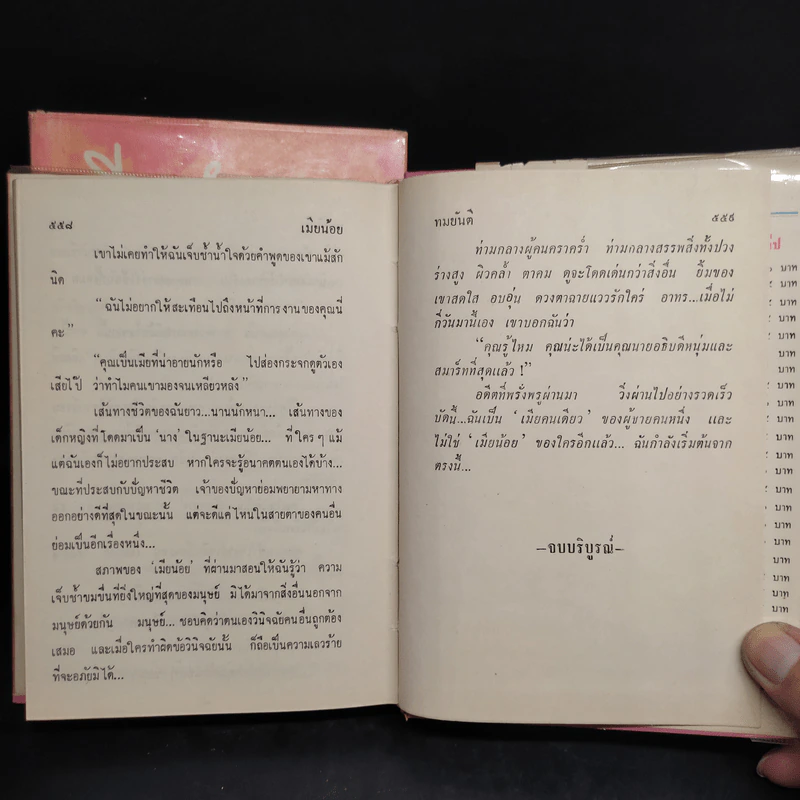 ๕๕๘
เมียน้อย
เขาไม่เคยทำให้ฉันเจ็บช้ำน้ำใจด้วยคำพูดของเขาแม้สัก
นิด
“ฉันไม่อยากให้สะเทือนไปถึงหน้าที่การงานของคุณนี่
คะ”
“คุณเป็นเมียที่น่าอายนักหรือ ไปส่องกระจกดูตัวเอง
เสียไป๊ ว่าทำไมคนเขามองจนเหลียวหลัง”
เส้นทางชีวิตของฉันยาว...นานนักหนา... เส้นทางของ
เด็กหญิงที่โดดมาเป็น ‘นาง’ ในฐานะเมียน้อย... ที่ใครๆ แม้
แต่ฉันเองก็ไม่อยากประสบ หากใครจะรู้อนาคตตนเองได้บ้าง...
ขณะที่ประสบกับปัญหาชีวิต เจ้าของปัญหาย่อมพยายามหาทาง
ออกอย่างดีที่สุดในขณะนั้น แต่จะดีแค่ไหนในสายตาของคนอื่น
ย่อมเป็นอีกเรื่องหนึ่ง...
สภาพของ ‘เมียน้อย’ ที่ผ่านมาสอนให้ฉันรู้ว่า ความ
เจ็บช้ำขมขื่นที่ยิ่งใหญ่ที่สุดของมนุษย์ มิได้มาจากสิ่งอื่นนอกจาก
มนุษย์ด้วยกัน มนุษย์... ชอบคิดว่าตนเองวินิจฉัยคนอื่นถูกต้อง
เสมอ และเมื่อใครทำผิดข้อวินิจฉัยนั้น ก็ถือเป็นความเลวร้าย
ที่จะอภัยมิได้...
ทมยันตี
๕๕๙
ท่ามกลางผู้คนคราคร่ำ ท่ามกลางสรรพสิ่งทั้งปวง
ร่างสูง ผิวคล้ำ ตาคม ดูจะโดดเด่นกว่าสิ่งอื่น ยิ้มของ
เขาสดใส อบอุ่น ดวงตาฉายแววรักใคร่ อาทร...เมื่อไม่
กี่วันมานี้เอง เขาบอกฉันว่า
“คุณรู้ไหม คุณน่ะได้เป็นคุณนายอธิบดีหนุ่มและ
สมาร์ทที่สุดแล้ว !”
อดีตที่พรั่งพรูผ่านมา วิ่งผ่านไปอย่างรวดเร็ว
บัดนี้...ฉันเป็น ‘เมียคนเดียว’ ของผู้ชายคนหนึ่ง และ
ไม่ใช่ ‘เมียน้อย’ ของใครอีกแล้ว... ฉันกำลังเริ่มต้นจาก
ตรงนี้...
—จบบริบูรณ์—
บาท
บาท
บาท
บาท
บาท
บาท
บาท
บาท
บาท
บาท
บาท
บาท
บาท
บาท
บาท
บาท
บาท